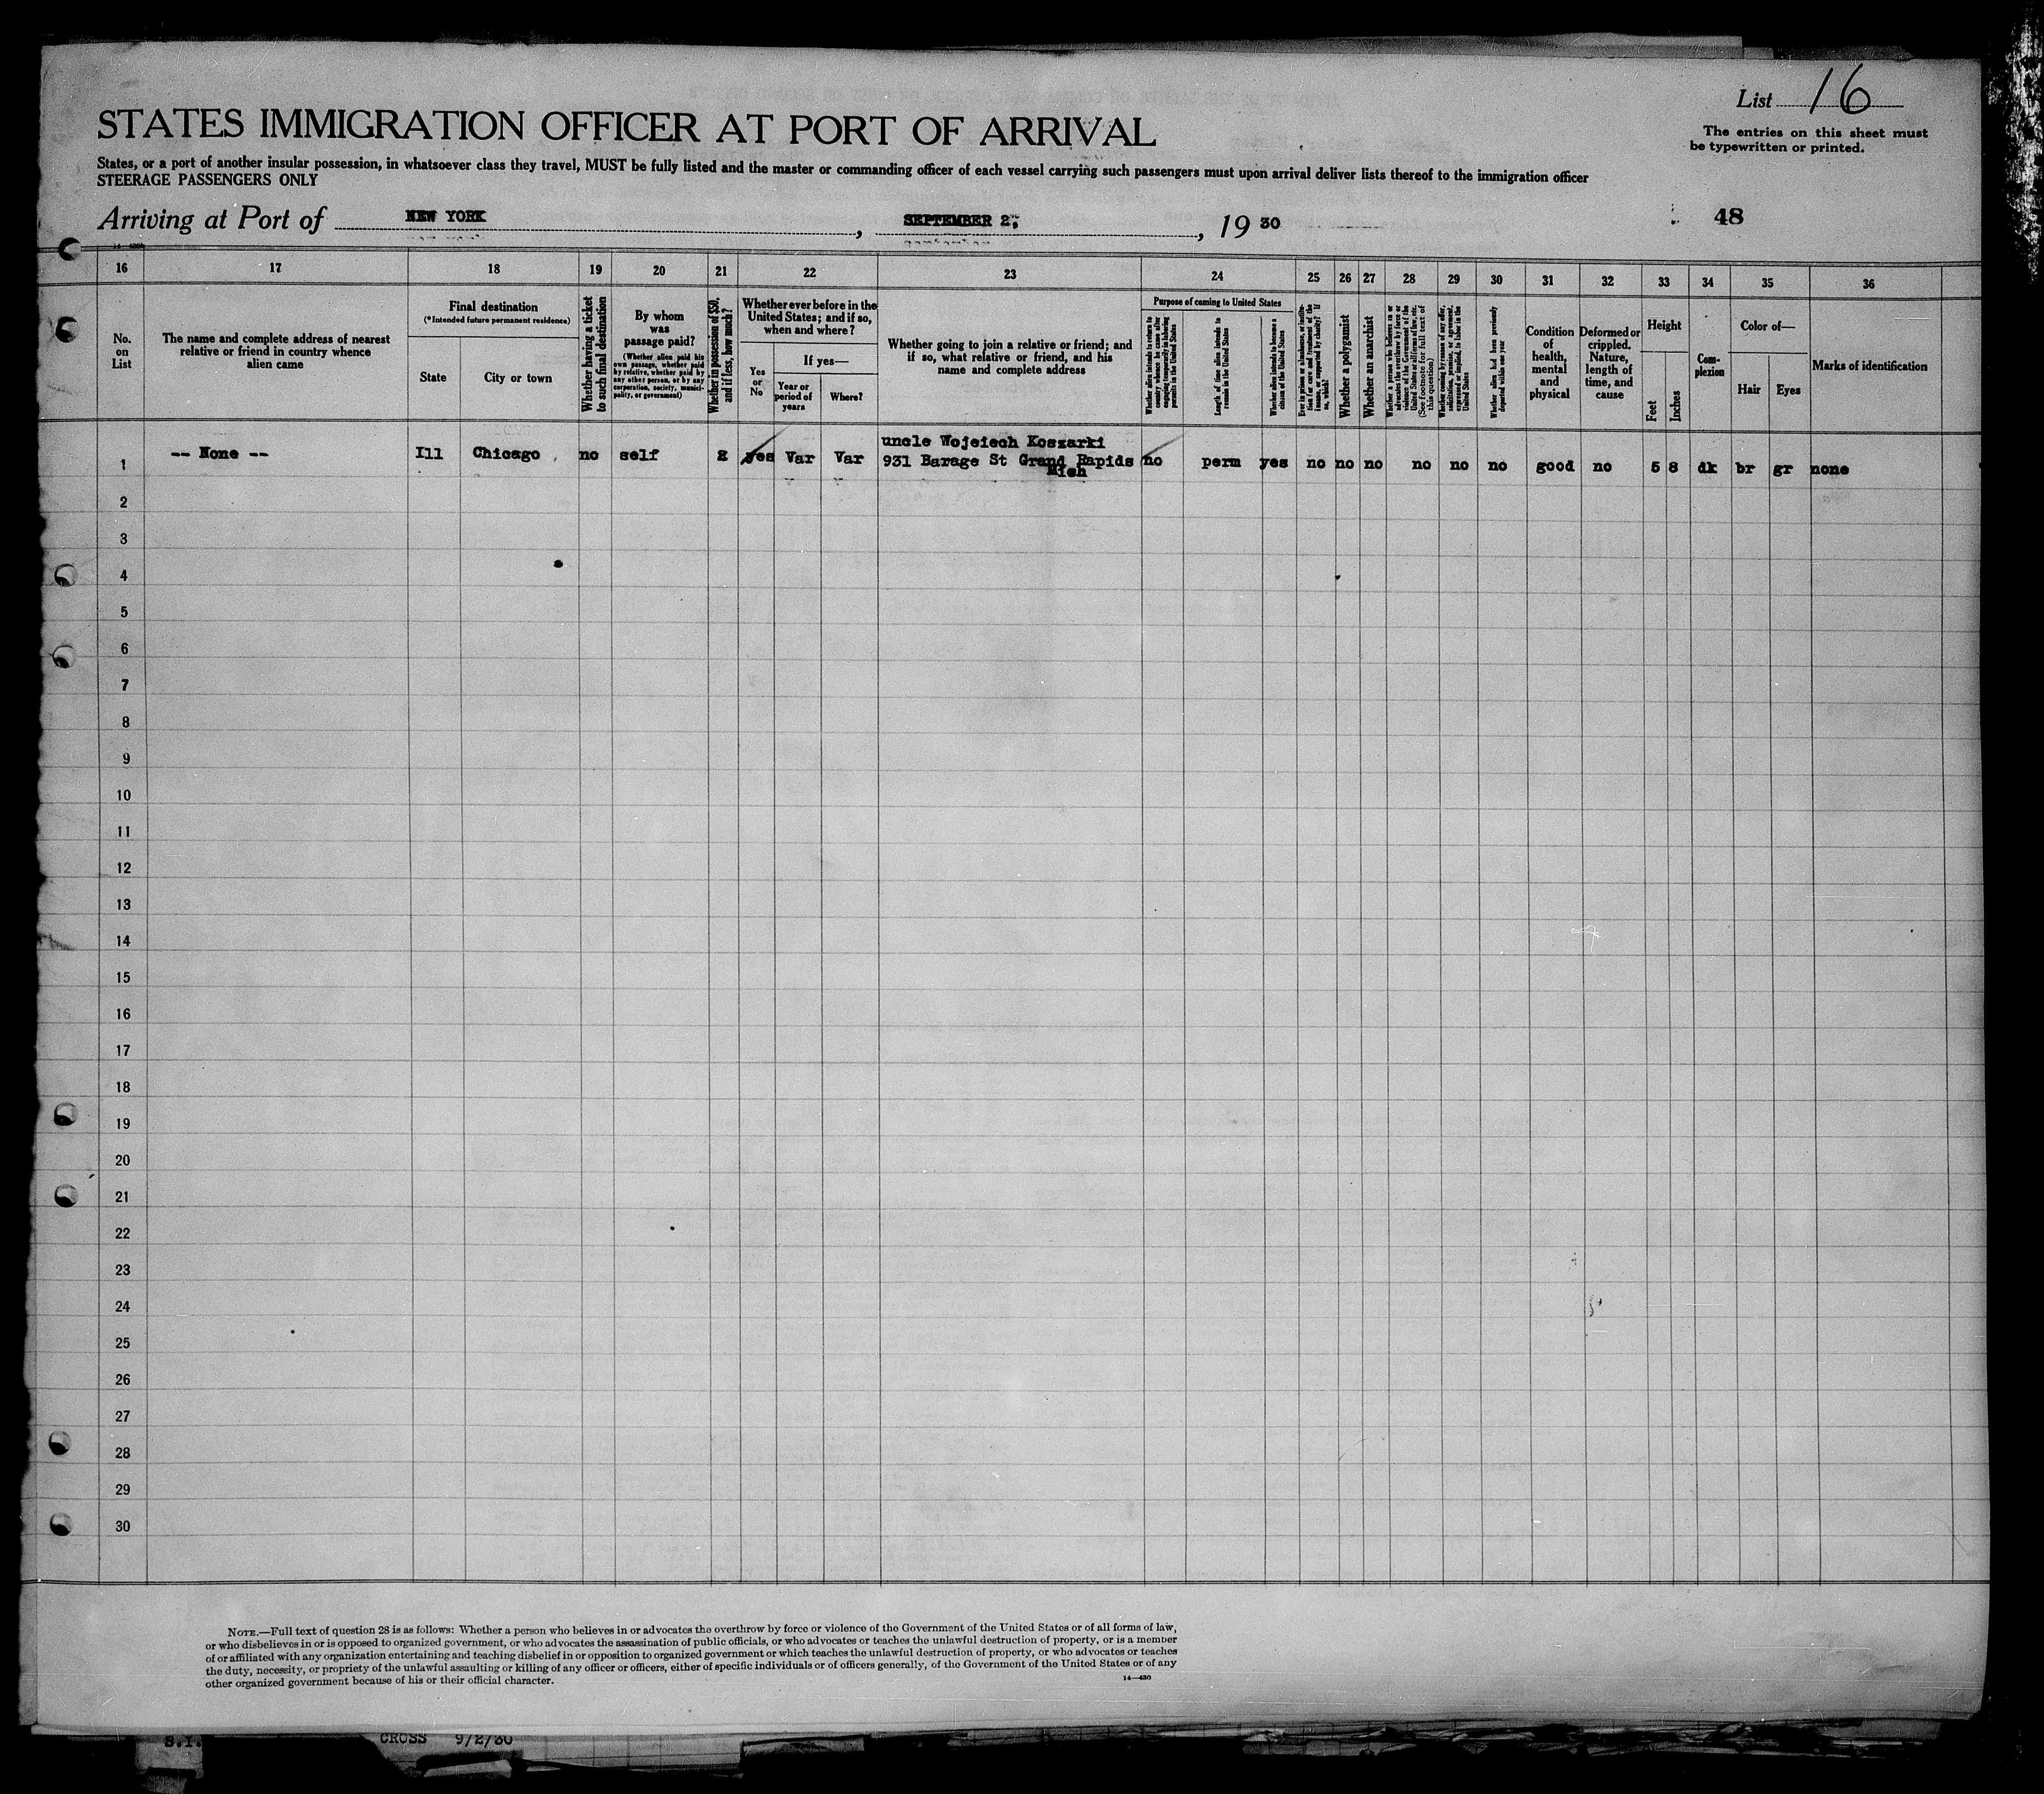 List 16
The entries on this sheet must
be typewritten or printed.
STATES IMMIGRATION OFFICER AT PORT OF ARRIVAL
States, or a port of another insular possession, in whatsoever class they travel, MUST be fully listed and the master or commanding officer of each vessel carrying such passengers must upon arrival deliver lists thereof to the immigration officer
STEERAGE PASSENGERS ONLY
Arriving at Port of NEW YORK, SEPTEMBER 2, 1930
48
16 17 18 19 20 21 22 23 24 25 26 27 28 29 30 31 32 33 34 35 36
No.
on
List
The name and complete address of nearest
relative or friend in country whence
alien came
Final destination
(*Intended future permanent residence)
State
City or town
Whether having a ticket
to such final destination
By whom
was
passage paid?
(Whether alien paid his
own passage, whether paid
by relative, whether paid by
any other person, or by any
corporation, society, munici-
pality, or government)
Whether in possession of $50,
and if less, how much?
Whether ever before in the
United States; and if so,
when and where?
Yes
or
No
If yes—
Year or
period of
years
Where?
Whether going to join a relative or friend; and
if so, what relative or friend, and his
name and complete address
Purpose of coming to United States
Whether alien intends to return to
country whence he came after
engaging temporarily in laboring
pursuits in the United States
Length of time alien intends to
remain in the United States
Whether alien intends to become a
citizen of the United States
Ever in prison or almshouse, or institu-
tion for care and treatment of the
insane, or supported by charity? If
so, which?
Whether a polygamist
Whether an anarchist
Whether a person who believes in or
advocates the overthrow by force or
violence of the Government of the
United States or all forms of law, etc.
(See footnote for full text of
this question)
Whether coming by reason of any offer,
solicitation, promise, or agreement,
expressed or implied, to labor in the
United States
Whether alien had been previously
deported within one year
Condition
of
health,
mental
and
physical
Deformed or
crippled.
Nature,
length of
time, and
cause
Height
Feet
Inches
Com-
plexion
Color of—
Hair
Eyes
Marks of identification
uncle Wojeiech Koszarki
1 -- None -- Ill Chicago no self 2 yes Var Var 931 Barage St Grand Rapids no perm yes no no no no no no good no 5 8 dk br gr none
Mich
2
3
4
5
6
7
8
9
10
11
12
13
14
15
16
17
18
19
20
21
22
23
24
25
26
27
28
29
30
NOTE.—Full text of question 28 is as follows: Whether a person who believes in or advocates the overthrow by force or violence of the Government of the United States or of all forms of law,
or who disbelieves in or is opposed to organized government, or who advocates the assassination of public officials, or who advocates or teaches the unlawful destruction of property, or is a member
of or affiliated with any organization entertaining and teaching disbelief in or opposition to organized government or which teaches the unlawful destruction of property, or who advocates or teaches
the duty, necessity, or propriety of the unlawful assaulting or killing of any officer or officers, either of specific individuals or of officers generally, of the Government of the United States or of any
other organized government because of his or their official character.
14—430
S.I. CROSS 9/2/30